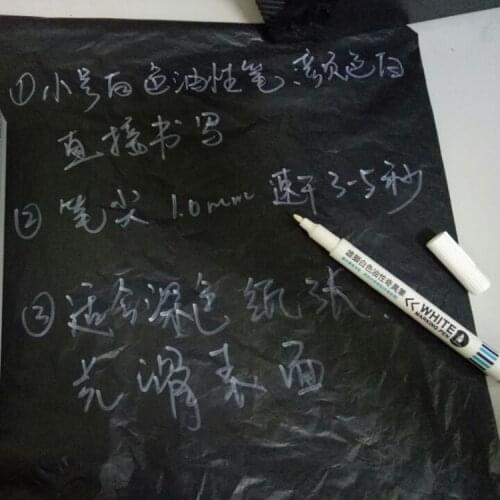 ①小号白色油性笔,颜色白
直接书写
②笔尖 1.0mm 速干3-5秒
③适合深色纸张、
光滑表面
白色油性奇異筆
<<WHITE
MARKING PEN